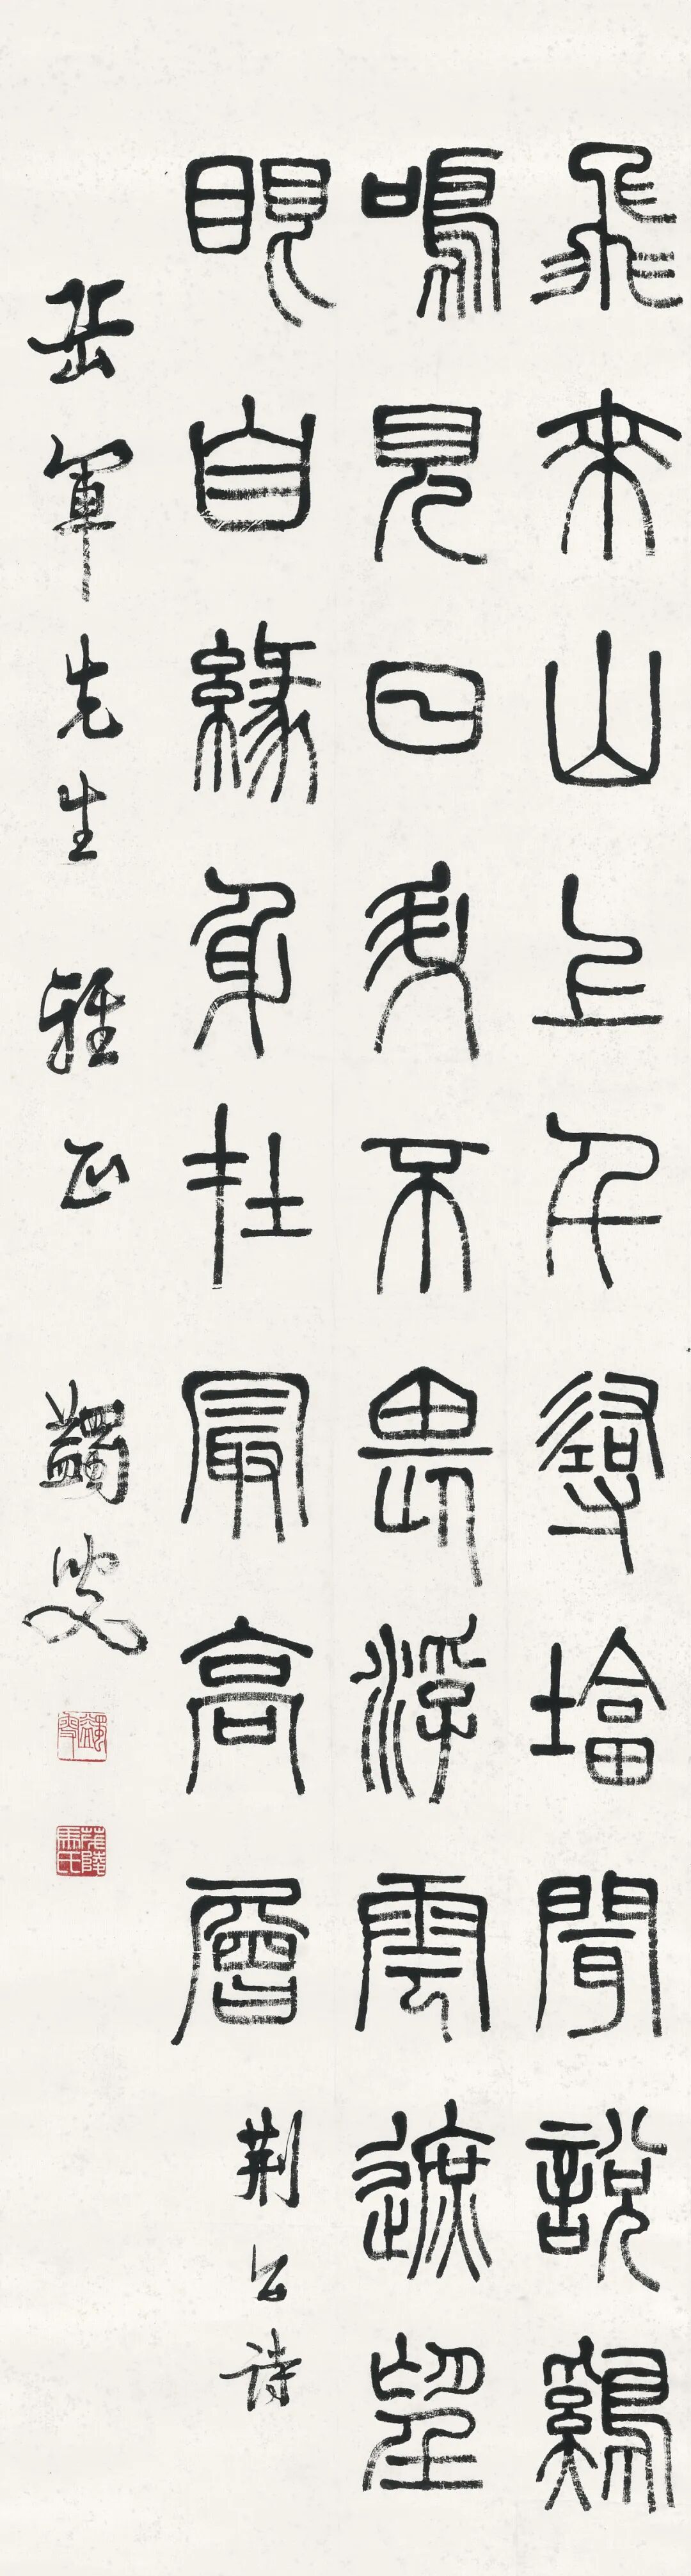 飛來山上千尋塔聞說鷄
鳴見日昇不畏浮雲遮望
眼自緣身在最高層 荆公詩
岳軍先生 雅正 蠲叟
蠲叟